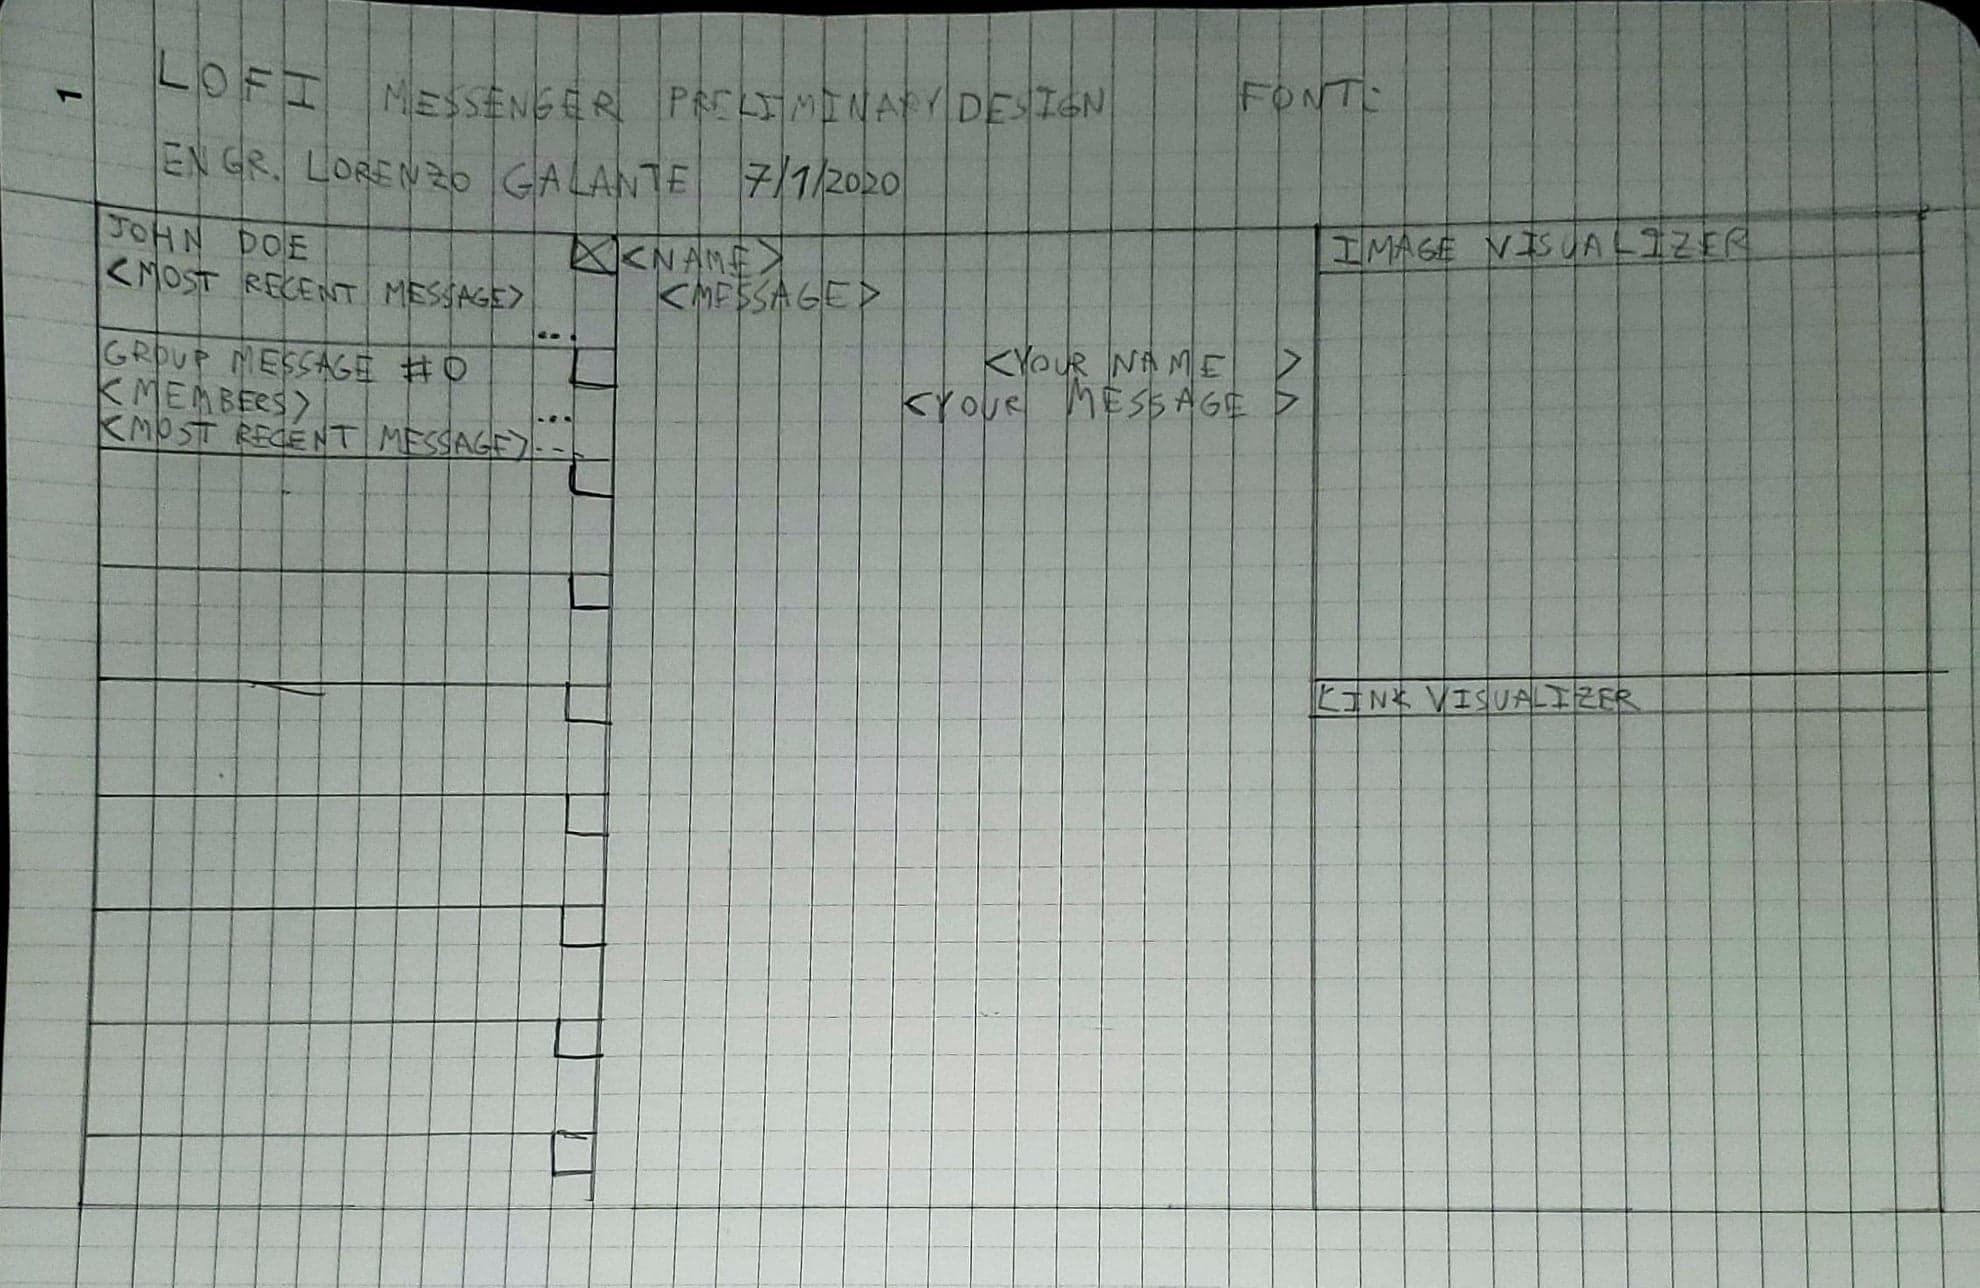 LOFI MESSENGER PRELIMINARY DESIGN FONT:
ENGR. LORENZO GALANTE 7/1/2020
JOHN DOE
<MOST RECENT MESSAGE>
...
GROUP MESSAGE #0
<MEMBERS> ...
<MOST RECENT MESSAGE>...
<NAME>
<MESSAGE>
<YOUR NAME >
<YOUR MESSAGE >
IMAGE VISUALIZER
LINK VISUALIZER